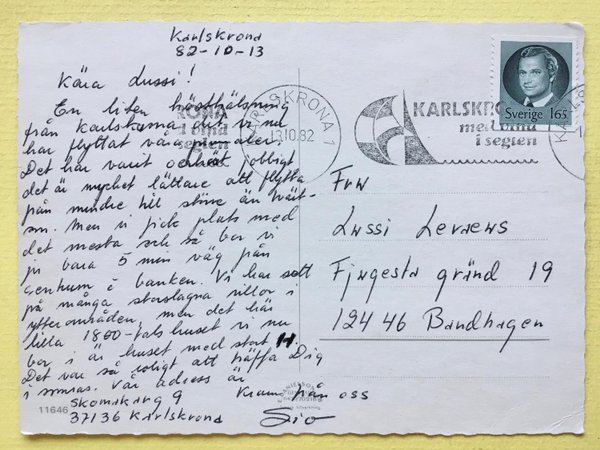 Karlskrona
82-10-13
Kära Lussi!
En liten hösthälsning
från Karlskrona dit vi nu
har flyttat våra
Det har varit jobbigt
det är mycket lättare att flytta
från mindre till större än
Men vi fick plats med
det mesta och så bor vi
ju bara 5 min väg från
centrum & banken. Vi har sett
på många storslagna villor i
ytterområden, men det här
lilla 1800-talshuset vi nu
bor i är huset med stort H.
Det var så roligt att träffa Dig
i somras. Vår adress är
Skomakarg 9
37136 Karlskrona
Kram från oss
Siv
11646
KARLSKRONA 1
13.10.82
KARLSKRONA
med vind
i seglen
Sverige 165
Fru
Lussi
Fjugesta gränd 19
124 46 Bandhagen